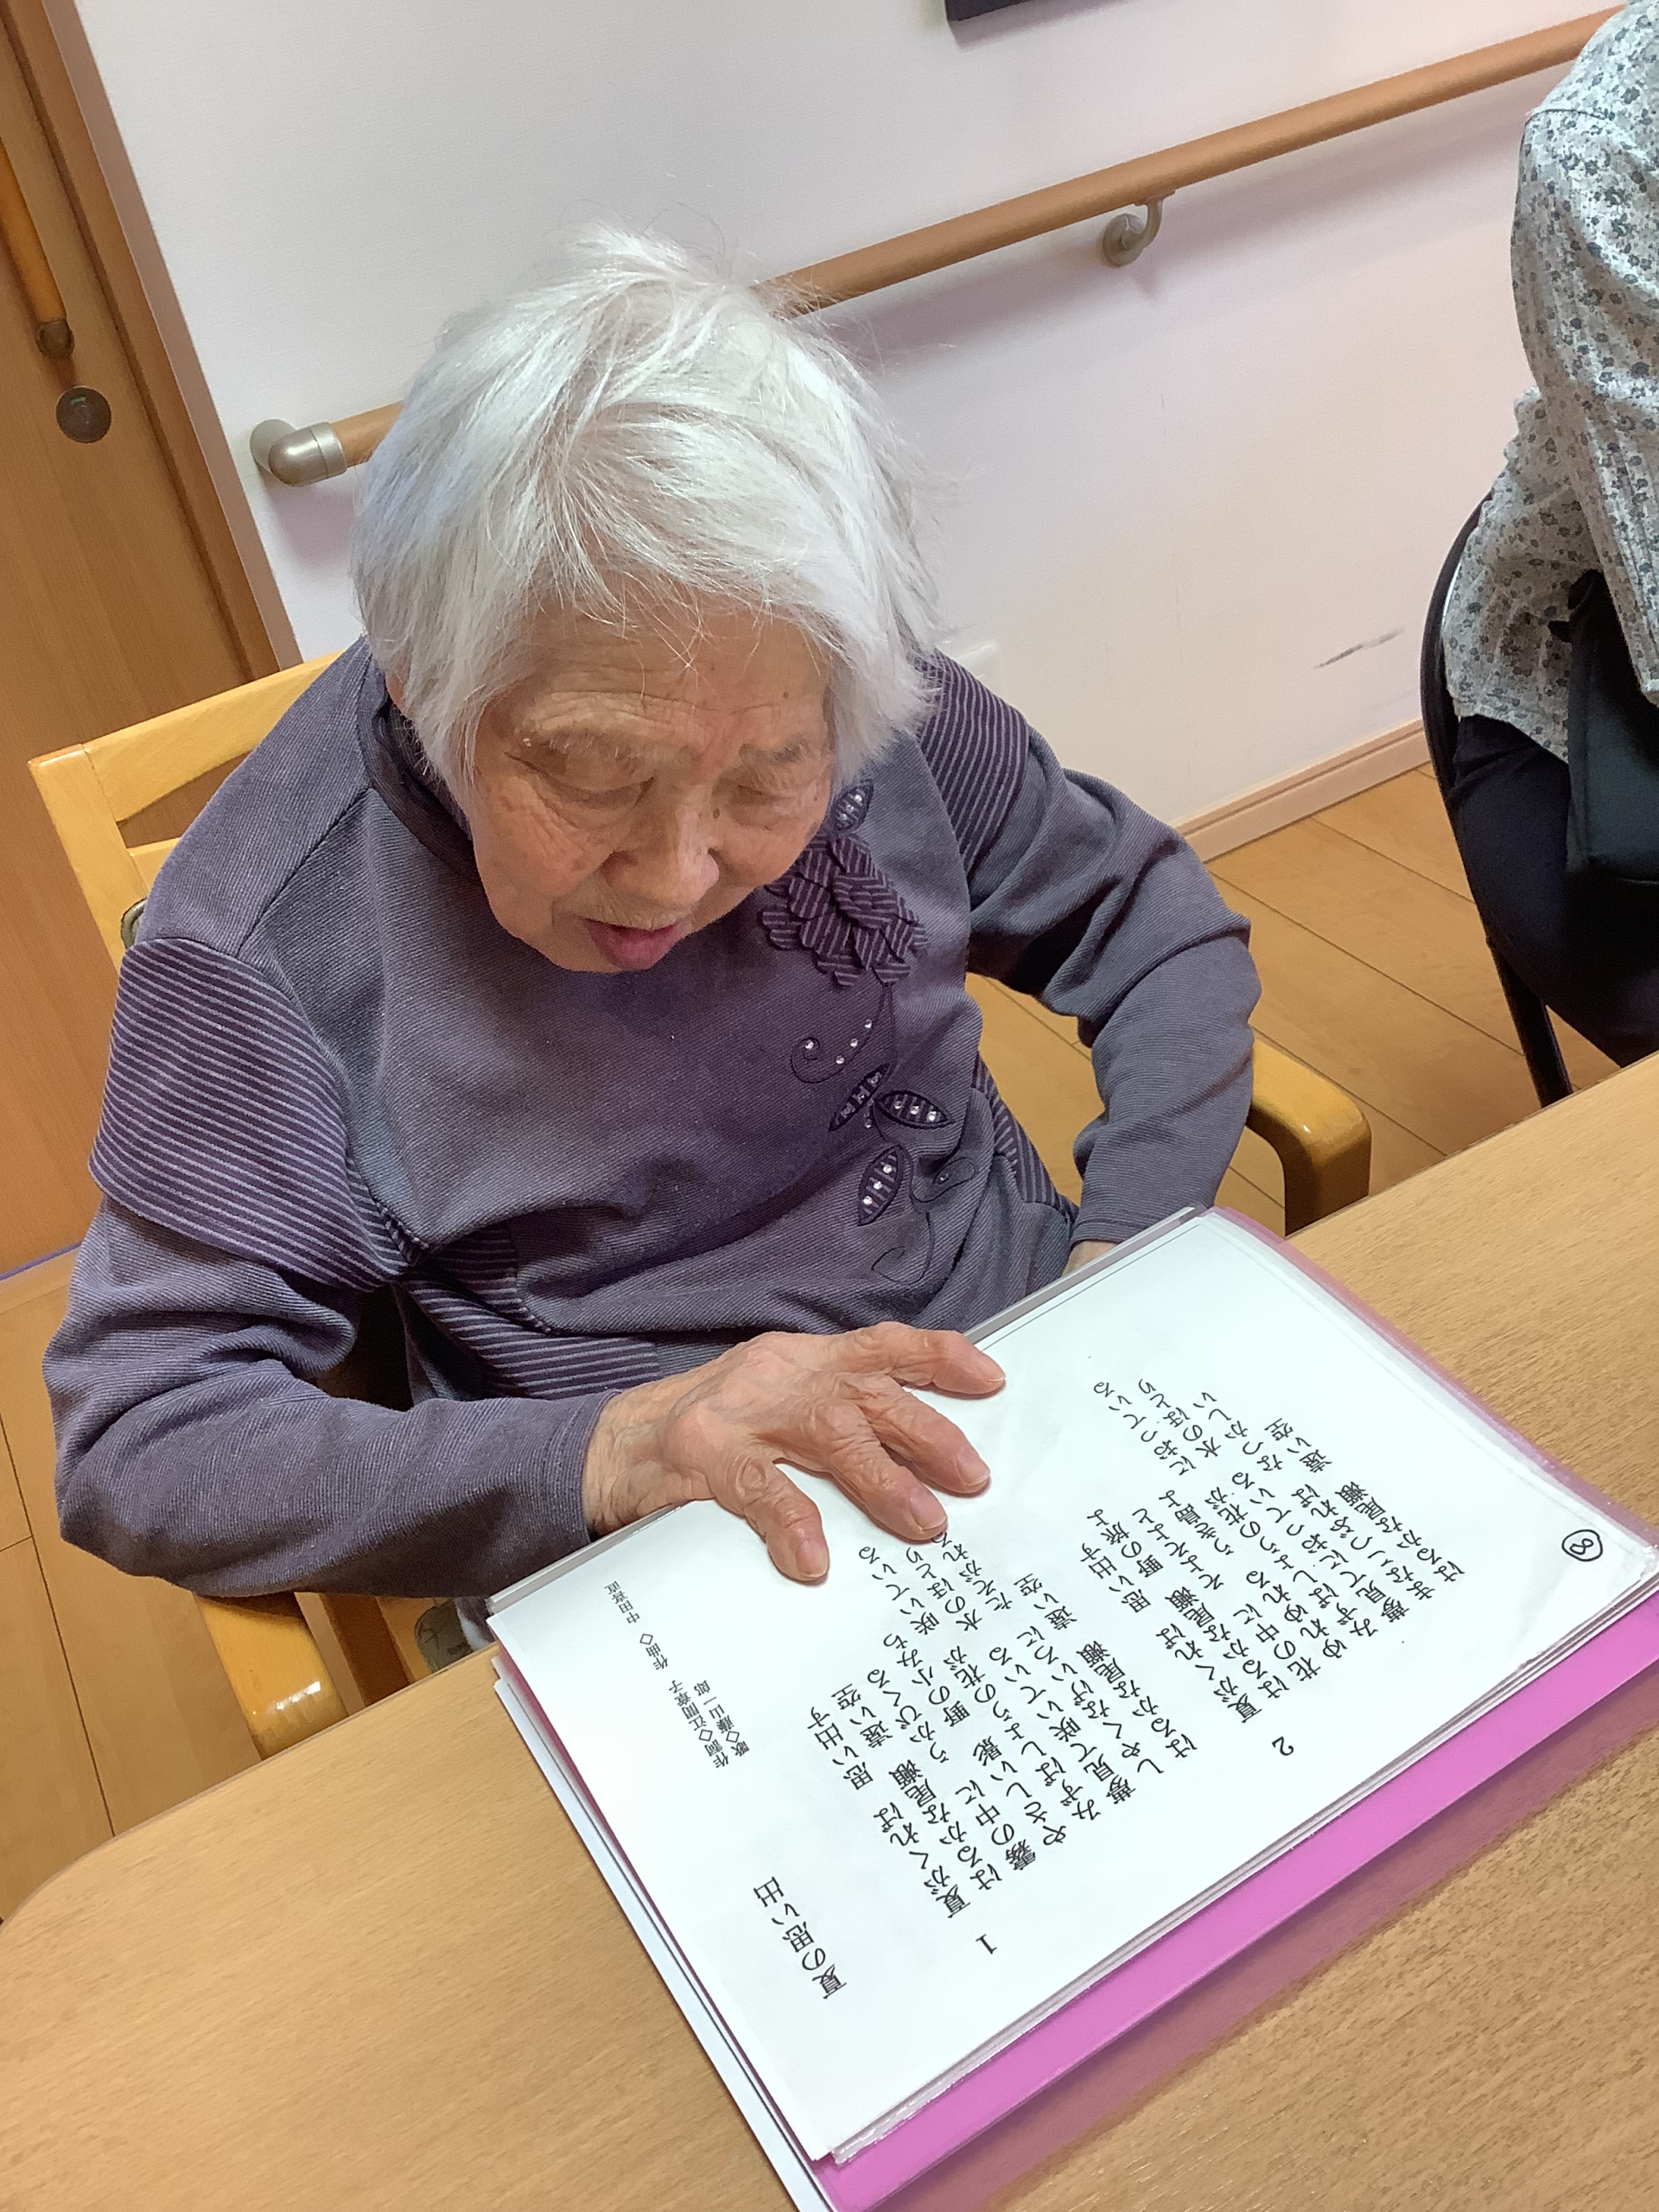 夏の思い出　作詞◇江間章子　作曲◇中田喜直
歌◇藤山一郎
1
夏がくれば　思い出す
はるかな尾瀬　遠い空
霧の中に　うかびくる
やさしい影　野の小みち
みずばしょうの花が　咲いている
夢見て咲いている　水のほとり
しやくなげいろに　たそがれる
はるかな尾瀬　遠い空
2
夏がくれば　思い出す
はるかな尾瀬　野の旅よ
花の中に　そよそよと
ゆれゆれる　うき島よ
みずばしょうの花が　におっている
夢見てにおっている　水のほとり
まなこつぶれば　なつかしい
はるかな尾瀬　遠い空
⑧